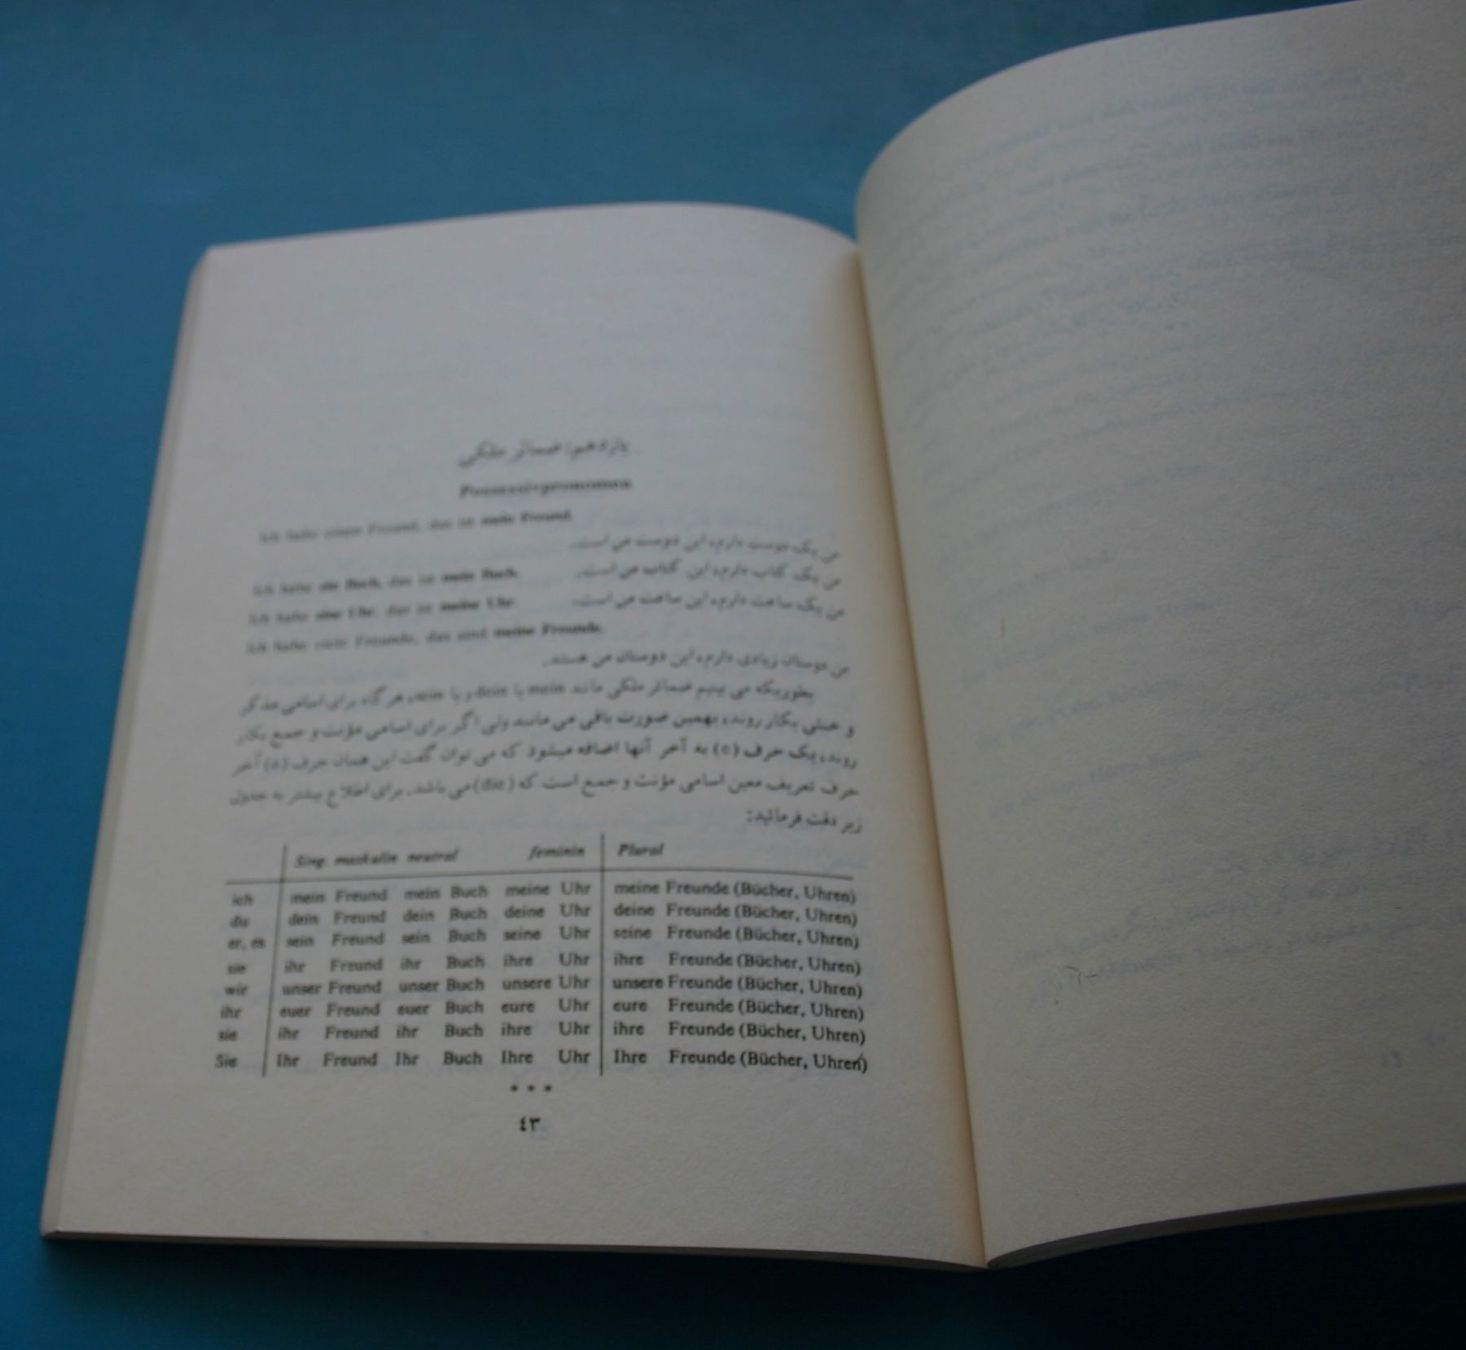 یازدهم: ضمائر ملکی
Possessivpronomen
Ich habe einen Freund, das ist mein Freund.
من یک دوست دارم، این دوست من است.
Ich habe ein Buch, das ist mein Buch. من یک کتاب دارم، این کتاب من است.
Ich habe eine Uhr, das ist meine Uhr. من یک ساعت دارم، این ساعت من است.
Ich habe viele Freunde, das sind meine Freunde.
من دوستان زیادی دارم، این دوستان من هستند.
بطوریکه می بینیم ضمائر ملکی مانند mein یا dein و یا sein، هرگاه برای اسامی مذکر
و خنثی بکار روند، بهمین صورت باقی می مانند ولی اگر برای اسامی مؤنث و جمع بکار
روند، یک حرف (e) به آخر آنها اضافه میشود که می توان گفت این همان حرف (e) آخر
حرف تعریف معین اسامی مؤنث و جمع است که (die) می باشد، برای اطلاع بیشتر به جدول
زیر دقت فرمائید:
Sing. maskulin neutral feminin Plural
ich mein Freund mein Buch meine Uhr meine Freunde (Bücher, Uhren)
du dein Freund dein Buch deine Uhr deine Freunde (Bücher, Uhren)
er, es sein Freund sein Buch seine Uhr seine Freunde (Bücher, Uhren)
sie ihr Freund ihr Buch ihre Uhr ihre Freunde (Bücher, Uhren)
wir unser Freund unser Buch unsere Uhr unsere Freunde (Bücher, Uhren)
ihr euer Freund euer Buch eure Uhr eure Freunde (Bücher, Uhren)
sie ihr Freund ihr Buch ihre Uhr ihre Freunde (Bücher, Uhren)
Sie Ihr Freund Ihr Buch Ihre Uhr Ihre Freunde (Bücher, Uhren)
* * *
٤٣